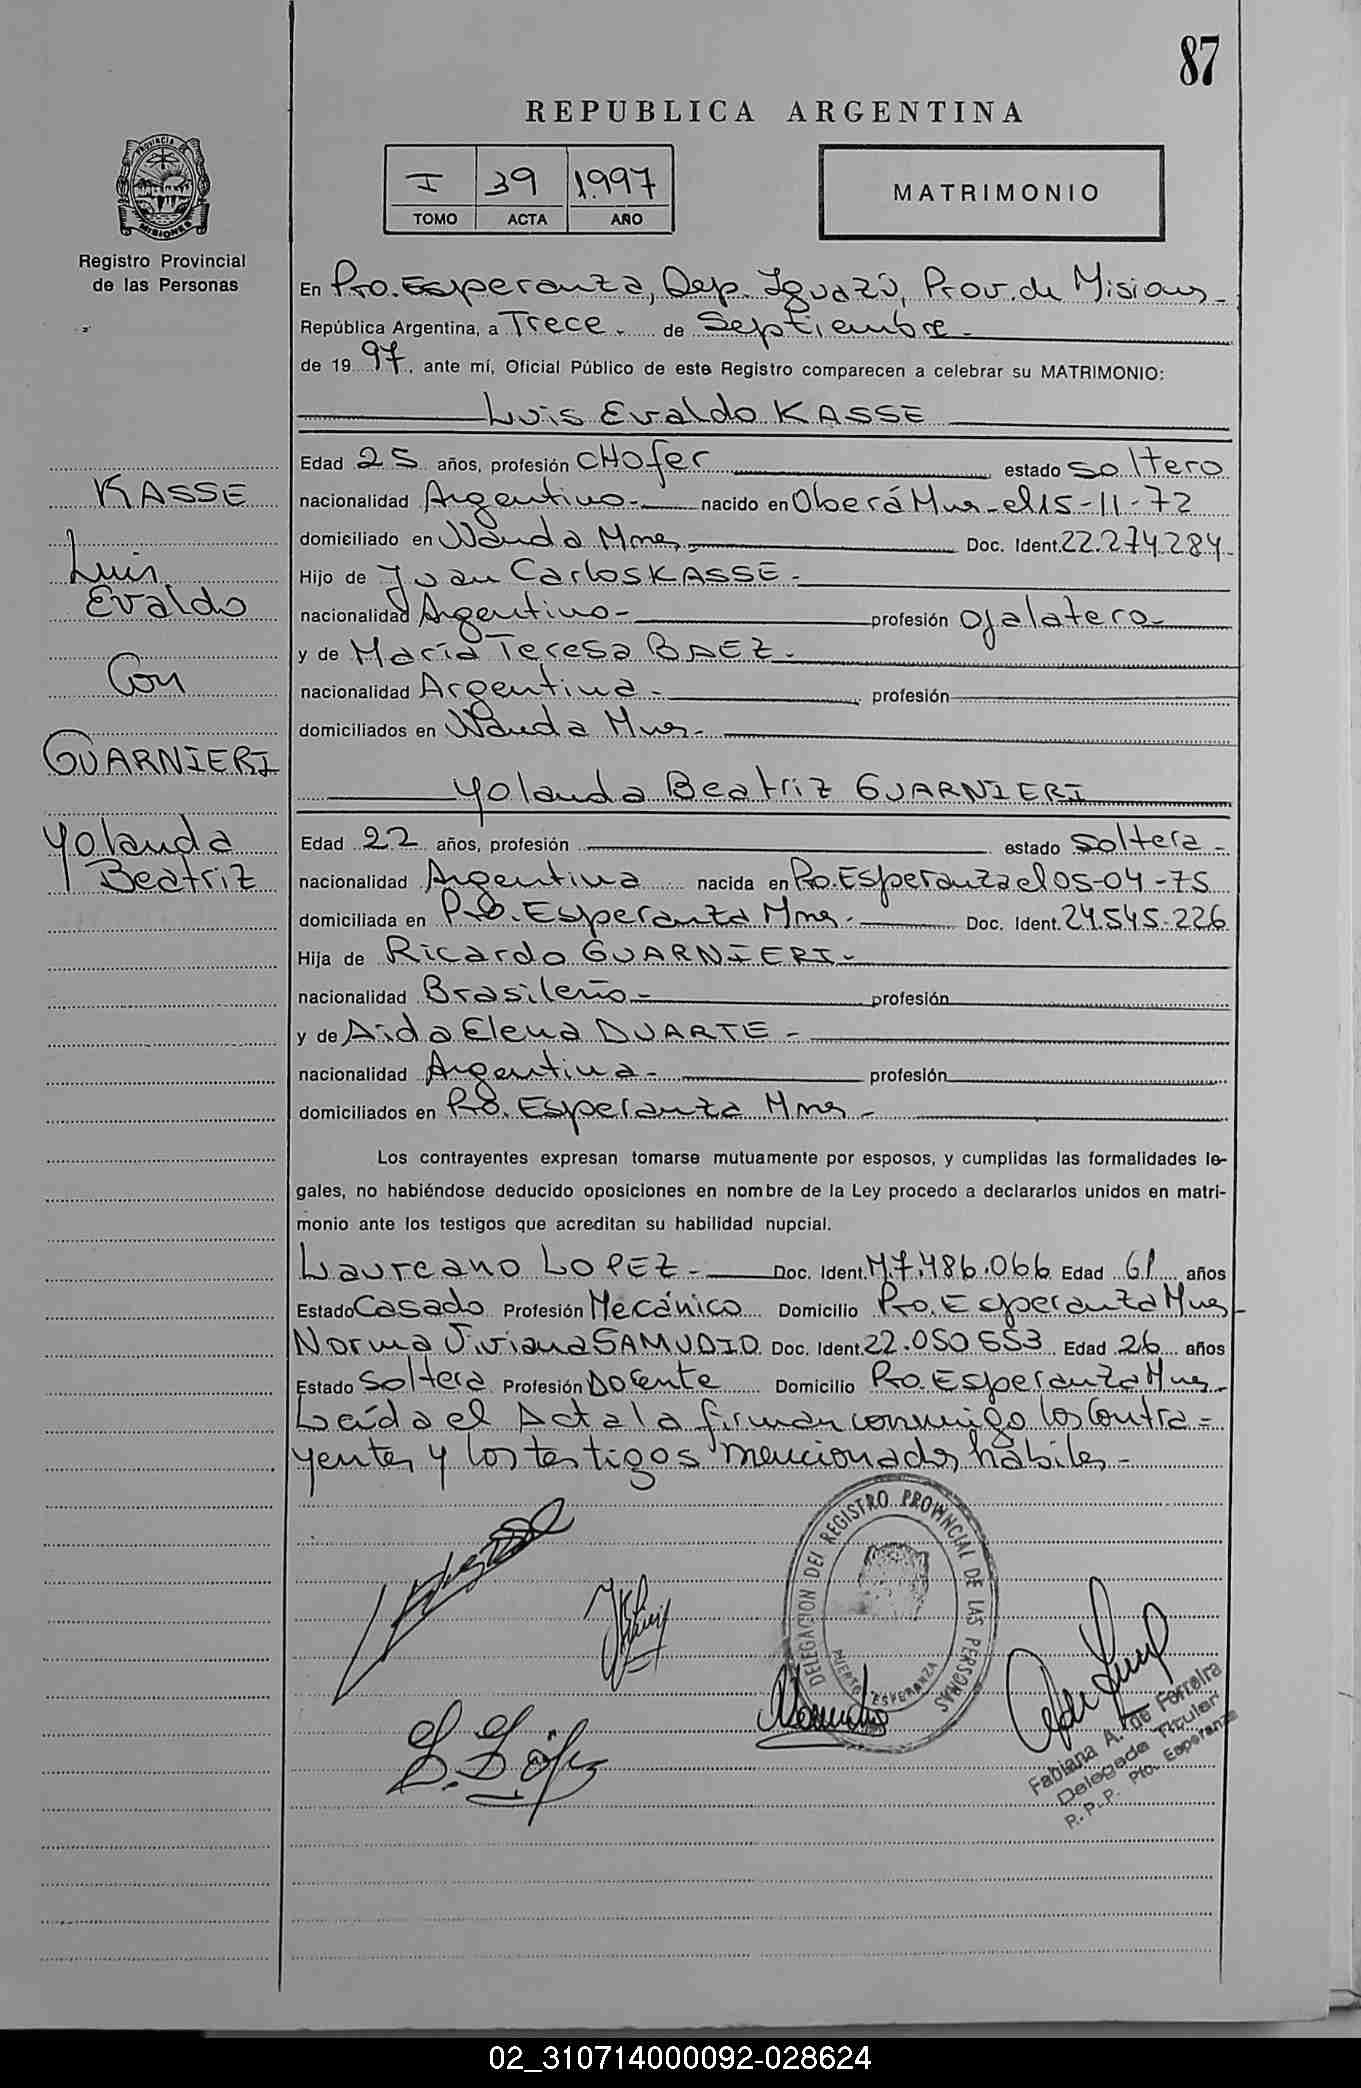 87
REPUBLICA ARGENTINA
I 39 1997
TOMO ACTA AÑO
MATRIMONIO
PROVINCIA DE
MISIONES
Registro Provincial
de las Personas
En Pto. Esperanza, Dep. Iguazú, Prov. de Misiones-
República Argentina, a Trece.- de Septiembre-
de 1997, ante mí, Oficial Público de este Registro comparecen a celebrar su MATRIMONIO:
Luis Evaldo KASSE
Edad 25 años, profesión CHofer estado soltero
nacionalidad Argentino- nacido en Oberá Mnes-el 15-11-72
domiciliado en Wanda Mnes- Doc. Ident. 22.274.284-
Hijo de Juan Carlos KASSE-
nacionalidad Argentino- profesión Ojalatero-
y de María Teresa BAEZ-
nacionalidad Argentina- profesión
domiciliados en Wanda Mnes-
Yolanda Beatriz GUARNIERI
Edad 22 años, profesión estado soltera-
nacionalidad Argentina nacida en Pto. Esperanza el 05-04-75
domiciliada en Pto. Esperanza Mnes- Doc. Ident. 24.545.226
Hija de Ricardo GUARNIERI-
nacionalidad Brasileño- profesión
y de Aida Elena DUARTE-
nacionalidad Argentina- profesión
domiciliados en Pto. Esperanza Mnes-
KASSE
Luis
Evaldo
Con
GUARNIERI
Yolanda
Beatriz
Los contrayentes expresan tomarse mutuamente por esposos, y cumplidas las formalidades le-
gales, no habiéndose deducido oposiciones en nombre de la Ley procedo a declararlos unidos en matri-
monio ante los testigos que acreditan su habilidad nupcial.
Laureano LOPEZ- Doc. Ident. M.7.486.066 Edad 61 años
Estado Casado Profesión Mecánico Domicilio Pto. Esperanza Mnes-
Norma Viviana SAMUDIO Doc. Ident. 22.050.553 Edad 26 años
Estado Soltera Profesión Docente Domicilio Pto. Esperanza Mnes-
Leída el Acta la firman conmigo los Contra-
yentes y los testigos mencionados hábiles-
DELEGACION DEL REGISTRO PROVINCIAL DE LAS PERSONAS
PUERTO ESPERANZA
L. López
Fabiana A. de Ferreira
Delegada Titular
R.P.P. Pto. Esperanza
02_310714000092-028624